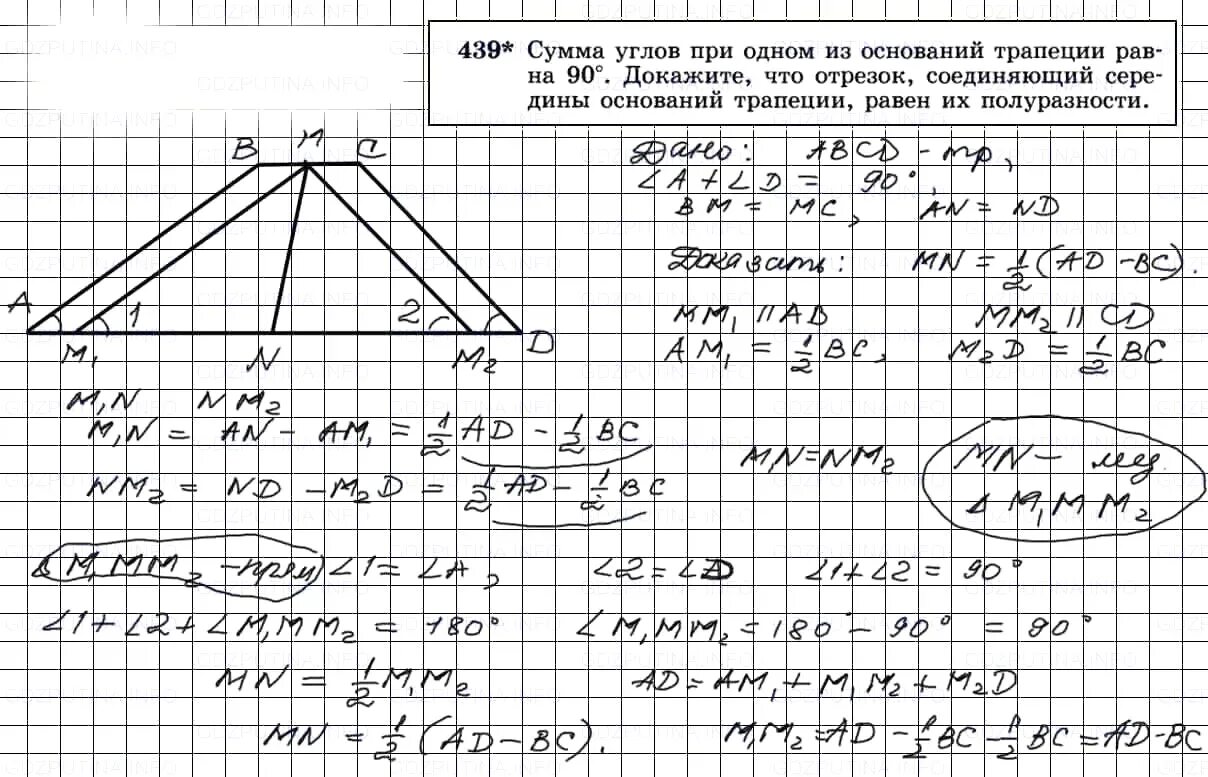 439* Сумма углов при одном из оснований трапеции рав-
на 90°. Докажите, что отрезок, соединяющий сере-
дины оснований трапеции, равен их полуразности.
B M C
A 1 2 D
M₁ N M₂
Дано: ABCD - тр,
∠A + ∠D = 90°,
BM = MC, AN = ND
Доказать: MN = 1/2 (AD - BC).
MM₁ || AB MM₂ || CD
AM₁ = 1/2 BC, M₂D = 1/2 BC
M₁N NM₂
M₁N = AN - AM₁ = 1/2 AD - 1/2 BC
M₁N = NM₂
MN - мед.
Δ M₁MM₂
NM₂ = ND - M₂D = 1/2 AD - 1/2 BC
Δ M₁MM₂ - прям) ∠1 = ∠A, ∠2 = ∠D ∠1 + ∠2 = 90°
∠1 + ∠2 + ∠M₁MM₂ = 180° ∠M₁MM₂ = 180 - 90° = 90°
MN = 1/2 M₁M₂ AD = AM₁ + M₁M₂ + M₂D
MN = 1/2 (AD - BC). M₁M₂ = AD - 1/2 BC - 1/2 BC = AD - BC
GDZPUTINA.INFO